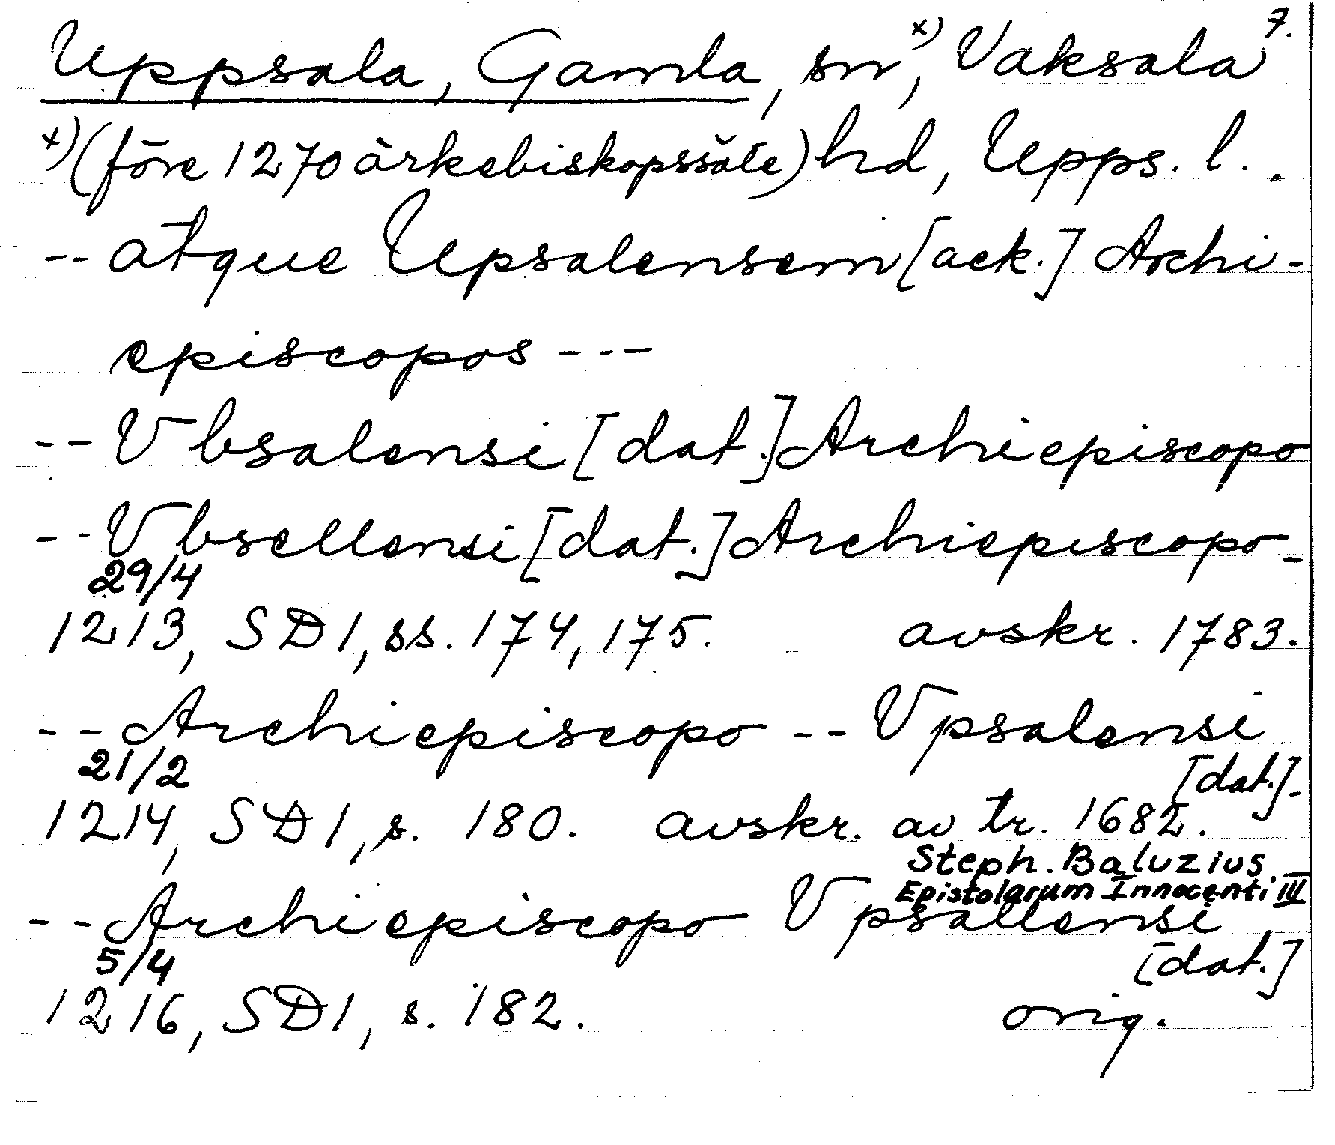 7.
Uppsala, Gamla, sn x), Vaksala
x) (före 1270 ärkebiskopssäte) hd, Upps. l.
-- atque Upsalensem [ack.] Archi-
episcopos ---
-- Vbsalensi [dat.] Archiepiscopo
-- Vbsellensi [dat.] Archiepiscopo-
29/4
1213, SD 1, ss. 174, 175. avskr. 1783.
-- Archiepiscopo -- Vpsalensi
21/2 [dat.]-
1214, SD 1, s. 180. avskr. av tr. 1682.
Steph. Baluzius
Epistolarum Innocenti III
-- Archiepiscopo Vpsallensi
5/4 [dat.]
1216, SD 1, s. 182. orig.